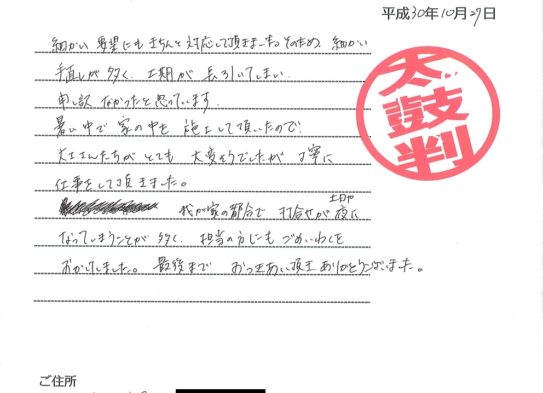 平成30年10月27日
細かい要望にもきちんと対応して頂きました。そのため、細かい
手直しが多く、工期が長引いてしまい、
申し訳なかったと思っています。
暑い中で家の中を施工して頂いたので、
大工さんたちがとても大変そうでしたが丁寧に
仕事をして頂きました。
我が家の都合で打合せが土日や夜に
なってしまうことが多く、担当の方にもごめいわくを
おかけしました。最後までおつきあい頂きありがとうございました。
太鼓判
ご住所